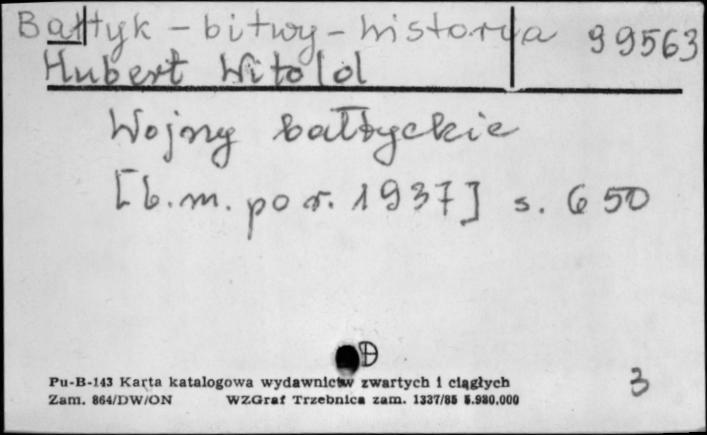 Bałtyk - bitwy - historia 99563
Hubert Witold
Wojny bałtyckie
[b.m. po r. 1937] s. 650
Pu-B-143 Karta katalogowa wydawnictw zwartych i ciągłych
Zam. 864/DW/ON WZGraf Trzebnica zam. 1337/85 5.980.000
3